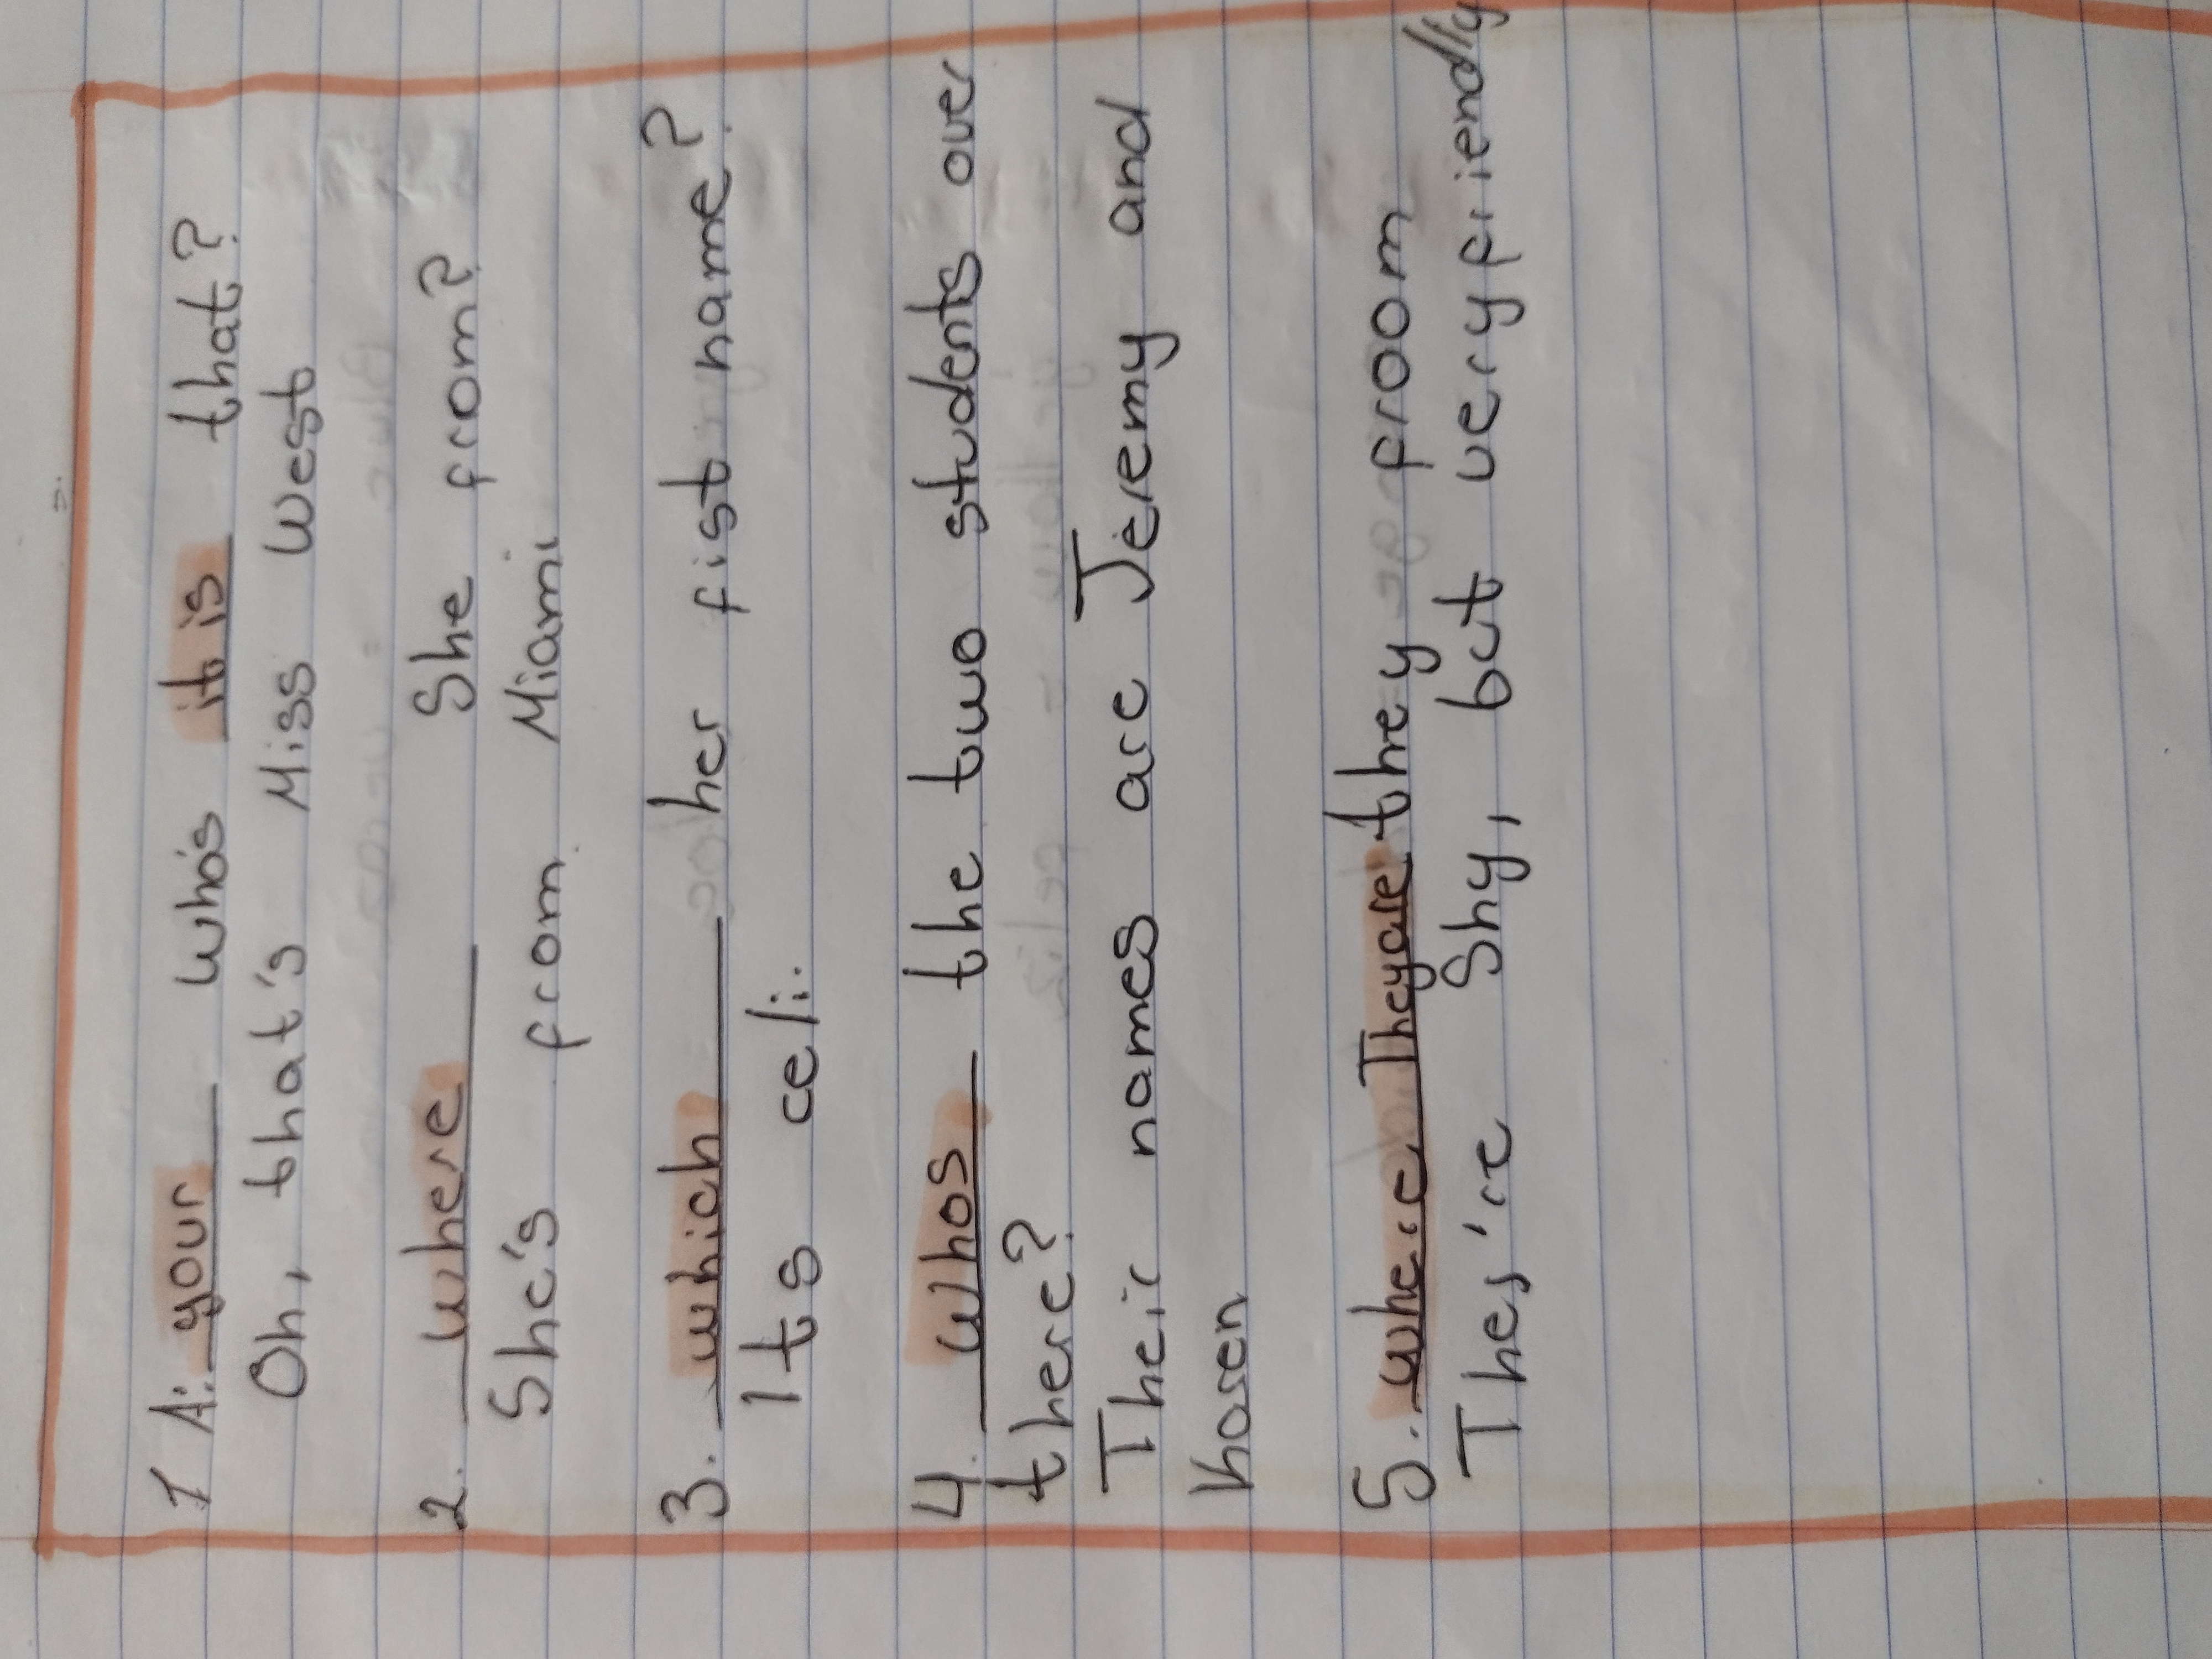 1 A: your who's it is that?
Oh, that's Miss West
2. where She from?
She's from Miami
3. which her fist name?
Its celi.
4. whos the two students over
there?
Their names are Jeremy and
Karen
5. where Theyare they froom
They're Shy, but very friendly